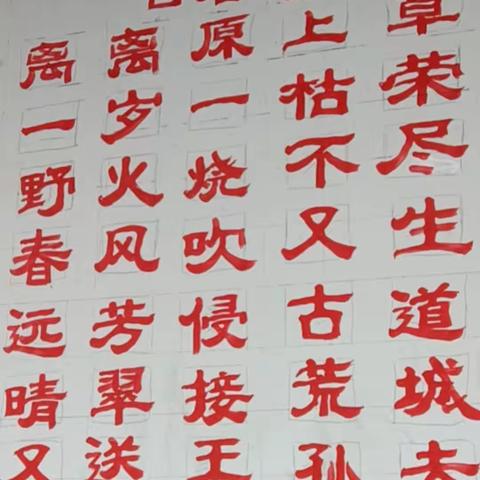 离离原上草
一岁一枯荣
野火烧不尽
春风吹又生
远芳侵古道
晴翠接荒城
又送王孙去